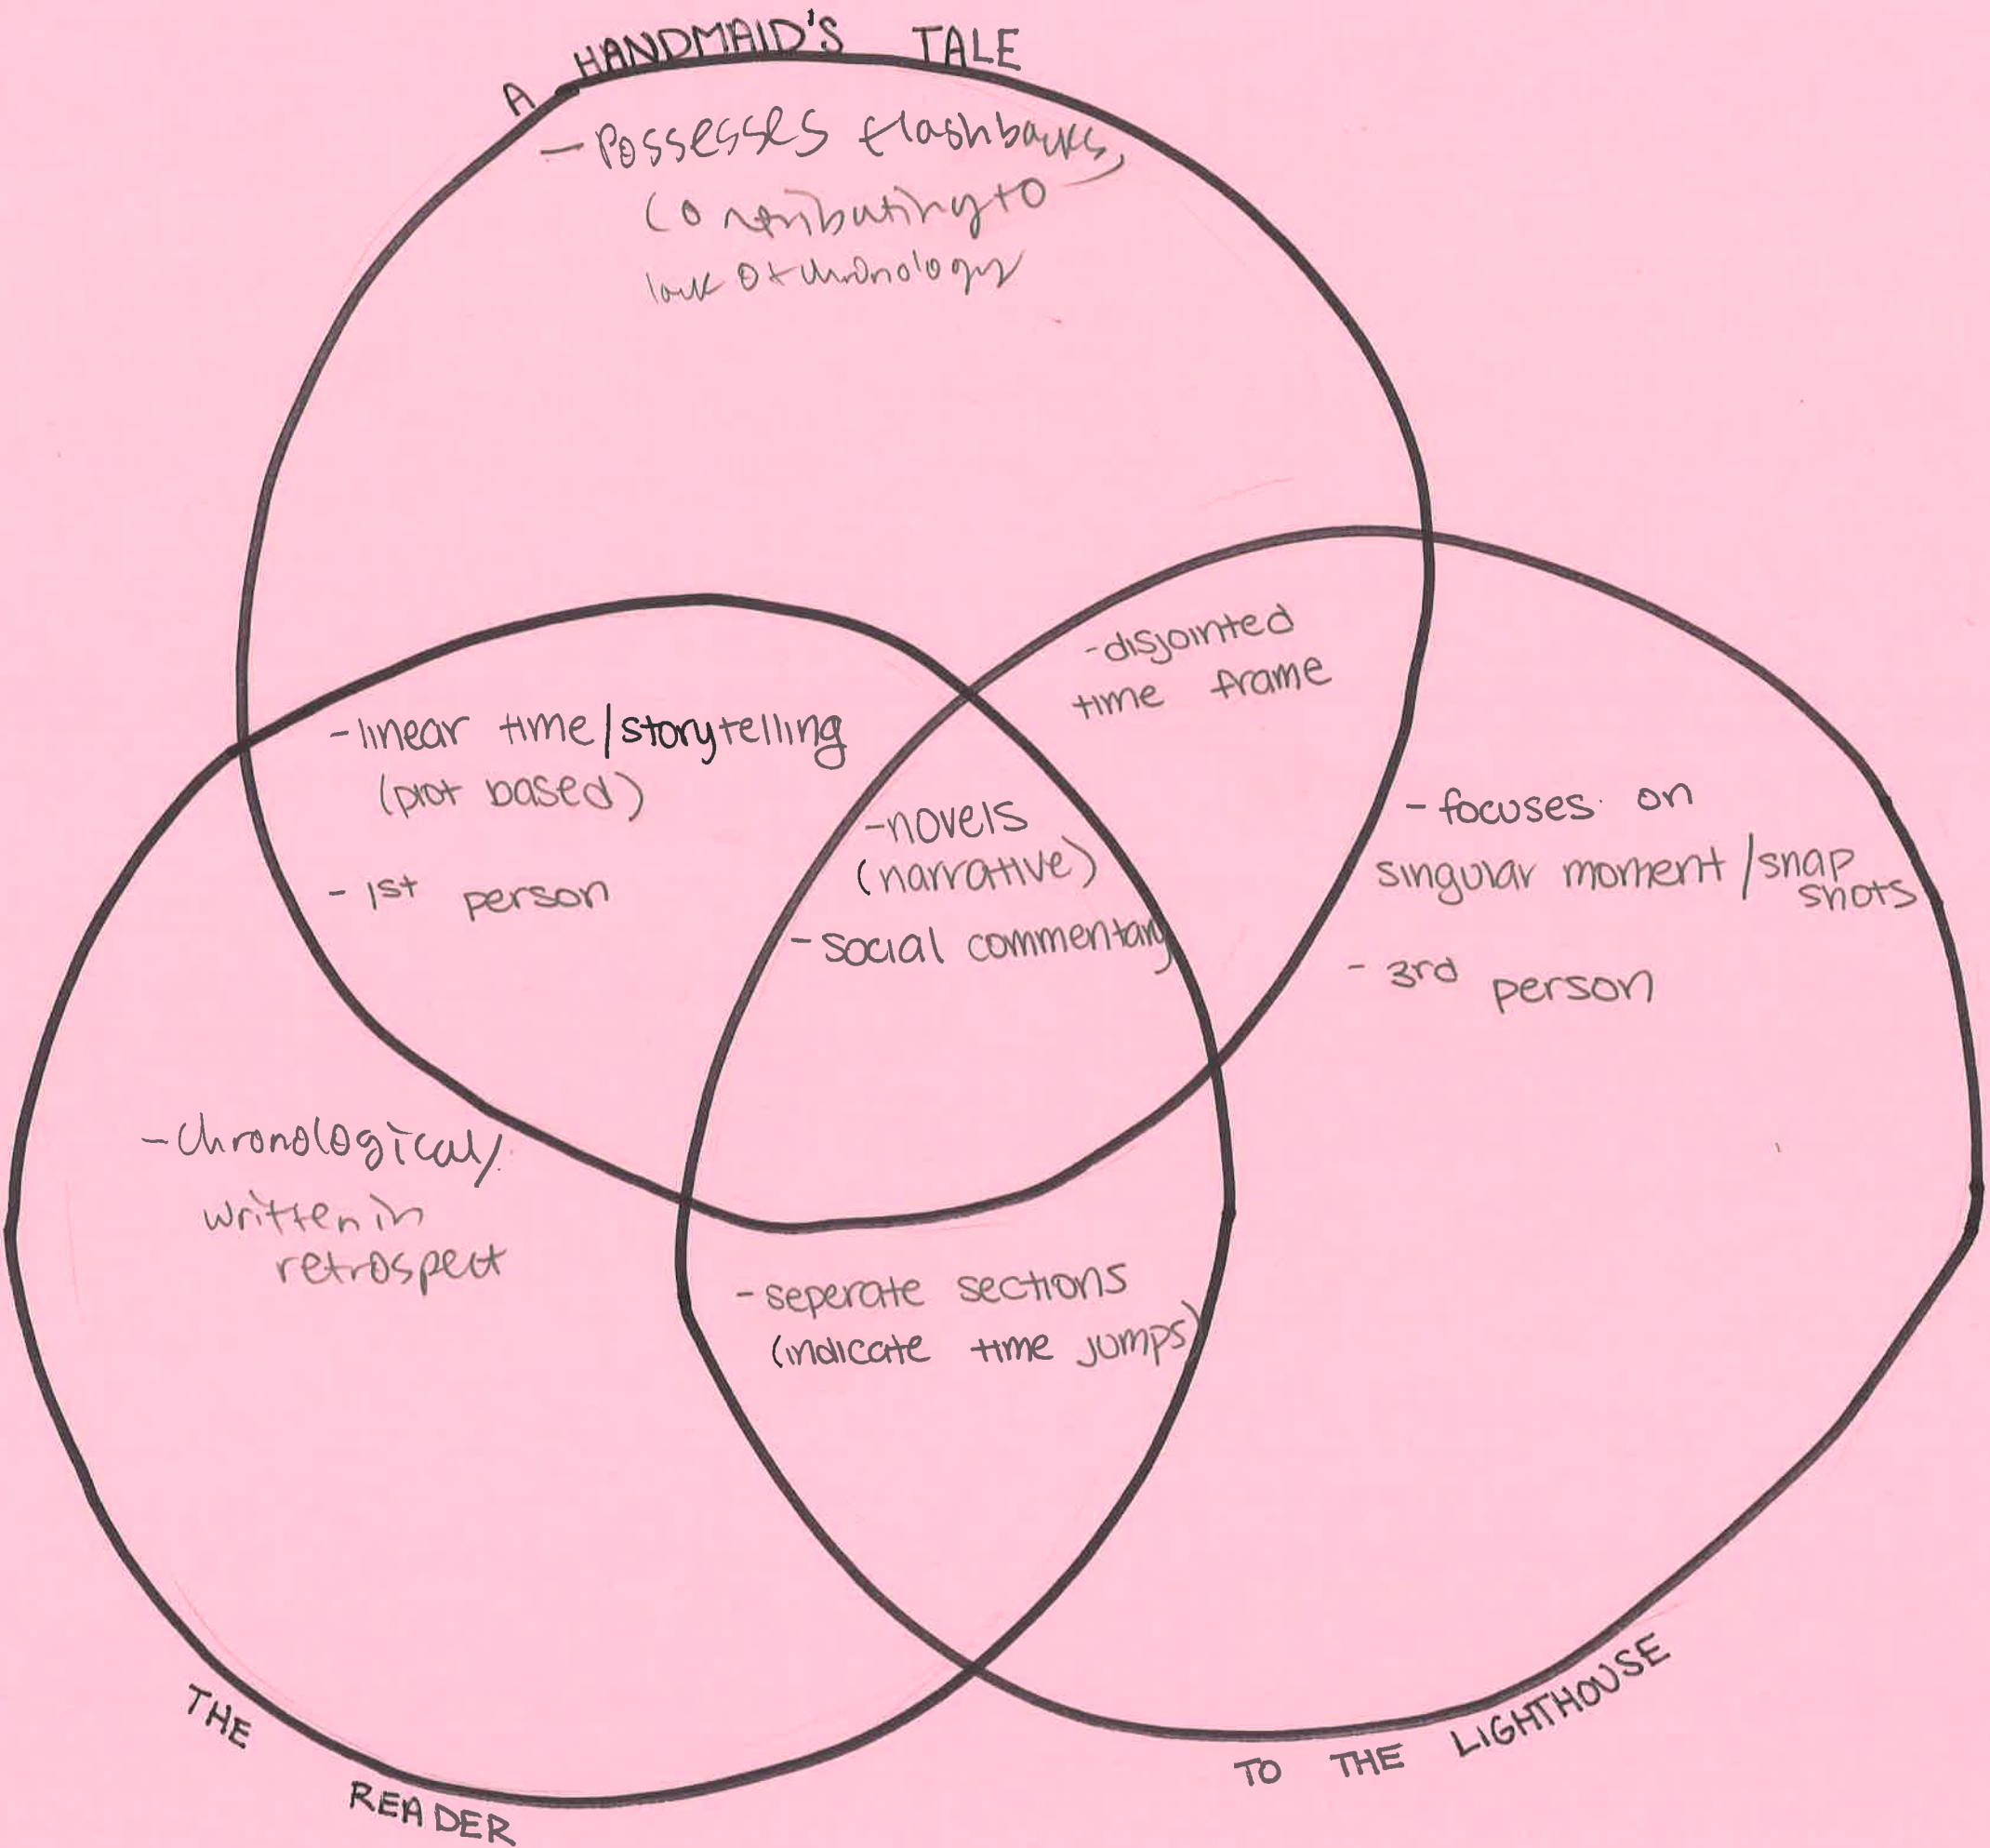 A HANDMAID'S TALE
- Possesses flashbacks,
contributing to
lack of chronology
- disjointed
time frame
- linear time/storytelling
(plot based)
- 1st person
- novels
(narrative)
- social commentary
- focuses on
singular moment/snap
shots
- 3rd person
- chronological/
written in
retrospect
- seperate sections
(indicate time jumps)
THE READER
TO THE LIGHTHOUSE